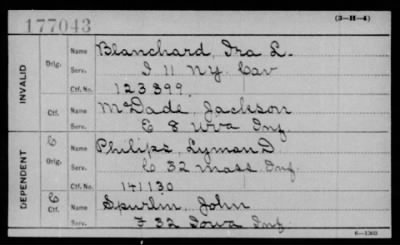 177043
(3-H-4)
INVALID
Orig.
Name Blanchard, Ira L.
Serv. I 11 NY. Cav
Ctf. No. 123399.
Ctf.
Name McDade, Jackson
Serv. E 8 WVa Inf
DEPENDENT
C
Orig.
Name Philips, Lyman D.
Serv. C 32 Mass Inf.
Ctf. No. 141130
C
Ctf.
Name Spurlin, John
Serv. F 32 Iowa Inf